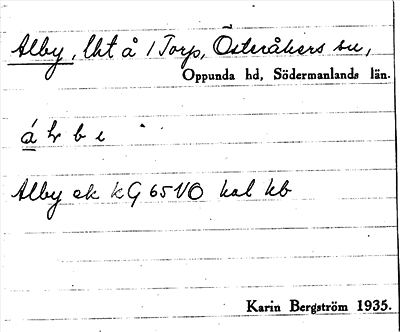 Alby, lht å 1 Torp, Österåkers sn,
Oppunda hd, Södermanlands län.
á lr b e
Alby ek kG 65 VO hal kb
Karin Bergström 1935.